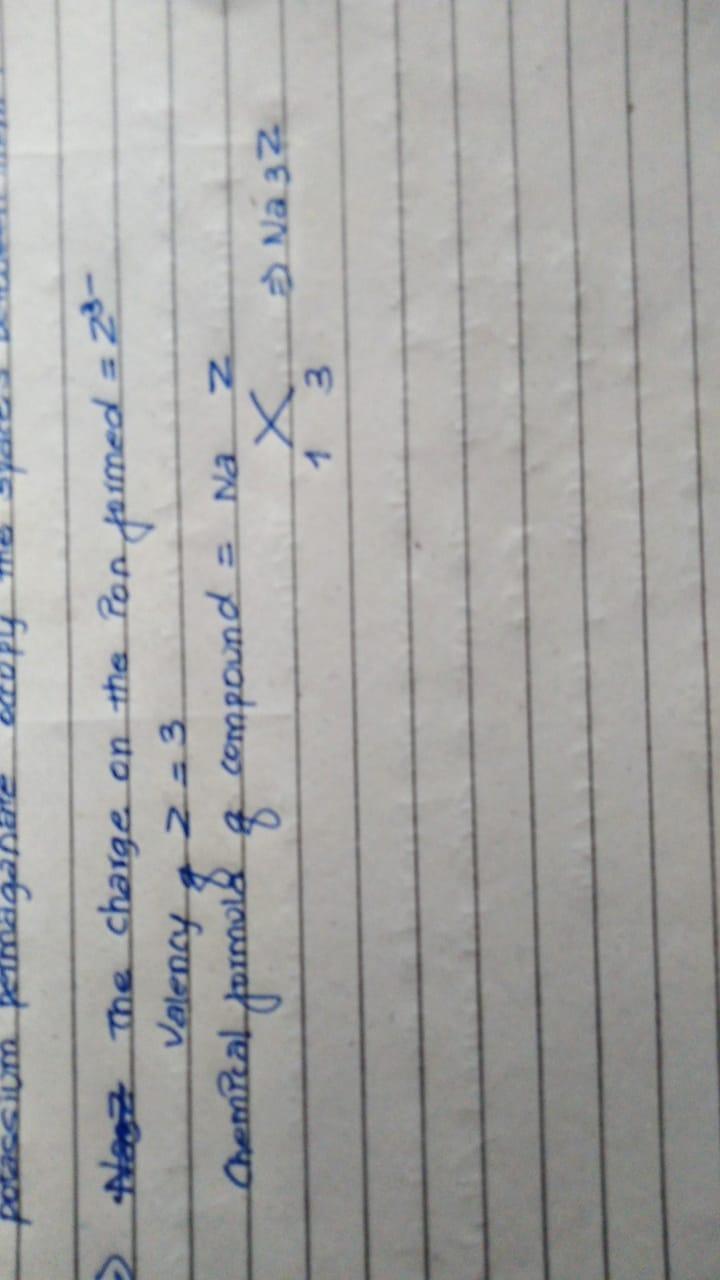 potassium permaganate occupy the spaces between them.
The charge on the ion formed = Z³⁻
Valency of Z = 3
Chemical formula of compound = Na Z ⇒ Na₃Z
1 3